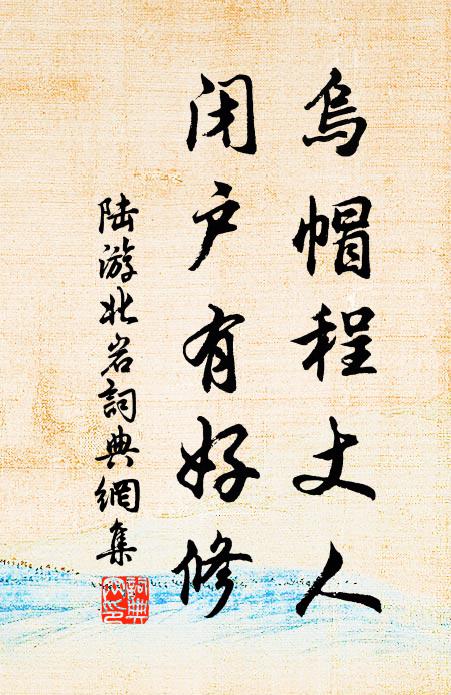 烏帽程丈人
闭户有好修
陆游北岩詞典網集